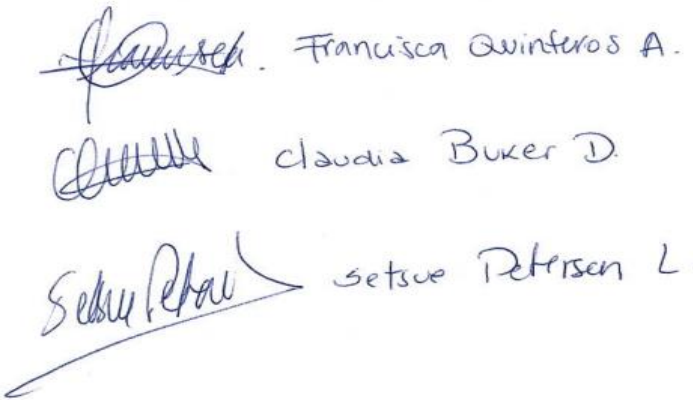 Francisca Quinteros A.
Claudia Buker D.
Setsue Petersen L